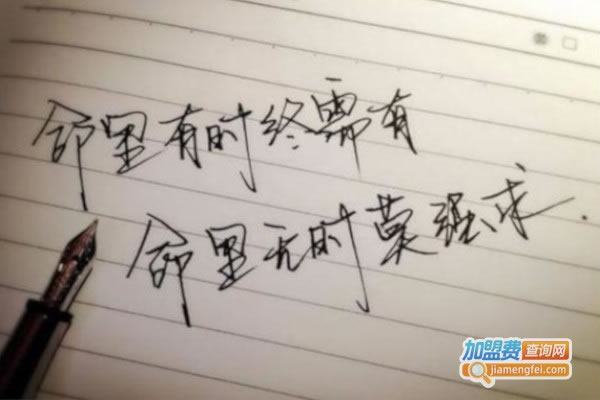 命里有时终需有
命里无时莫强求.
加盟费查询网
jiamengfei.com